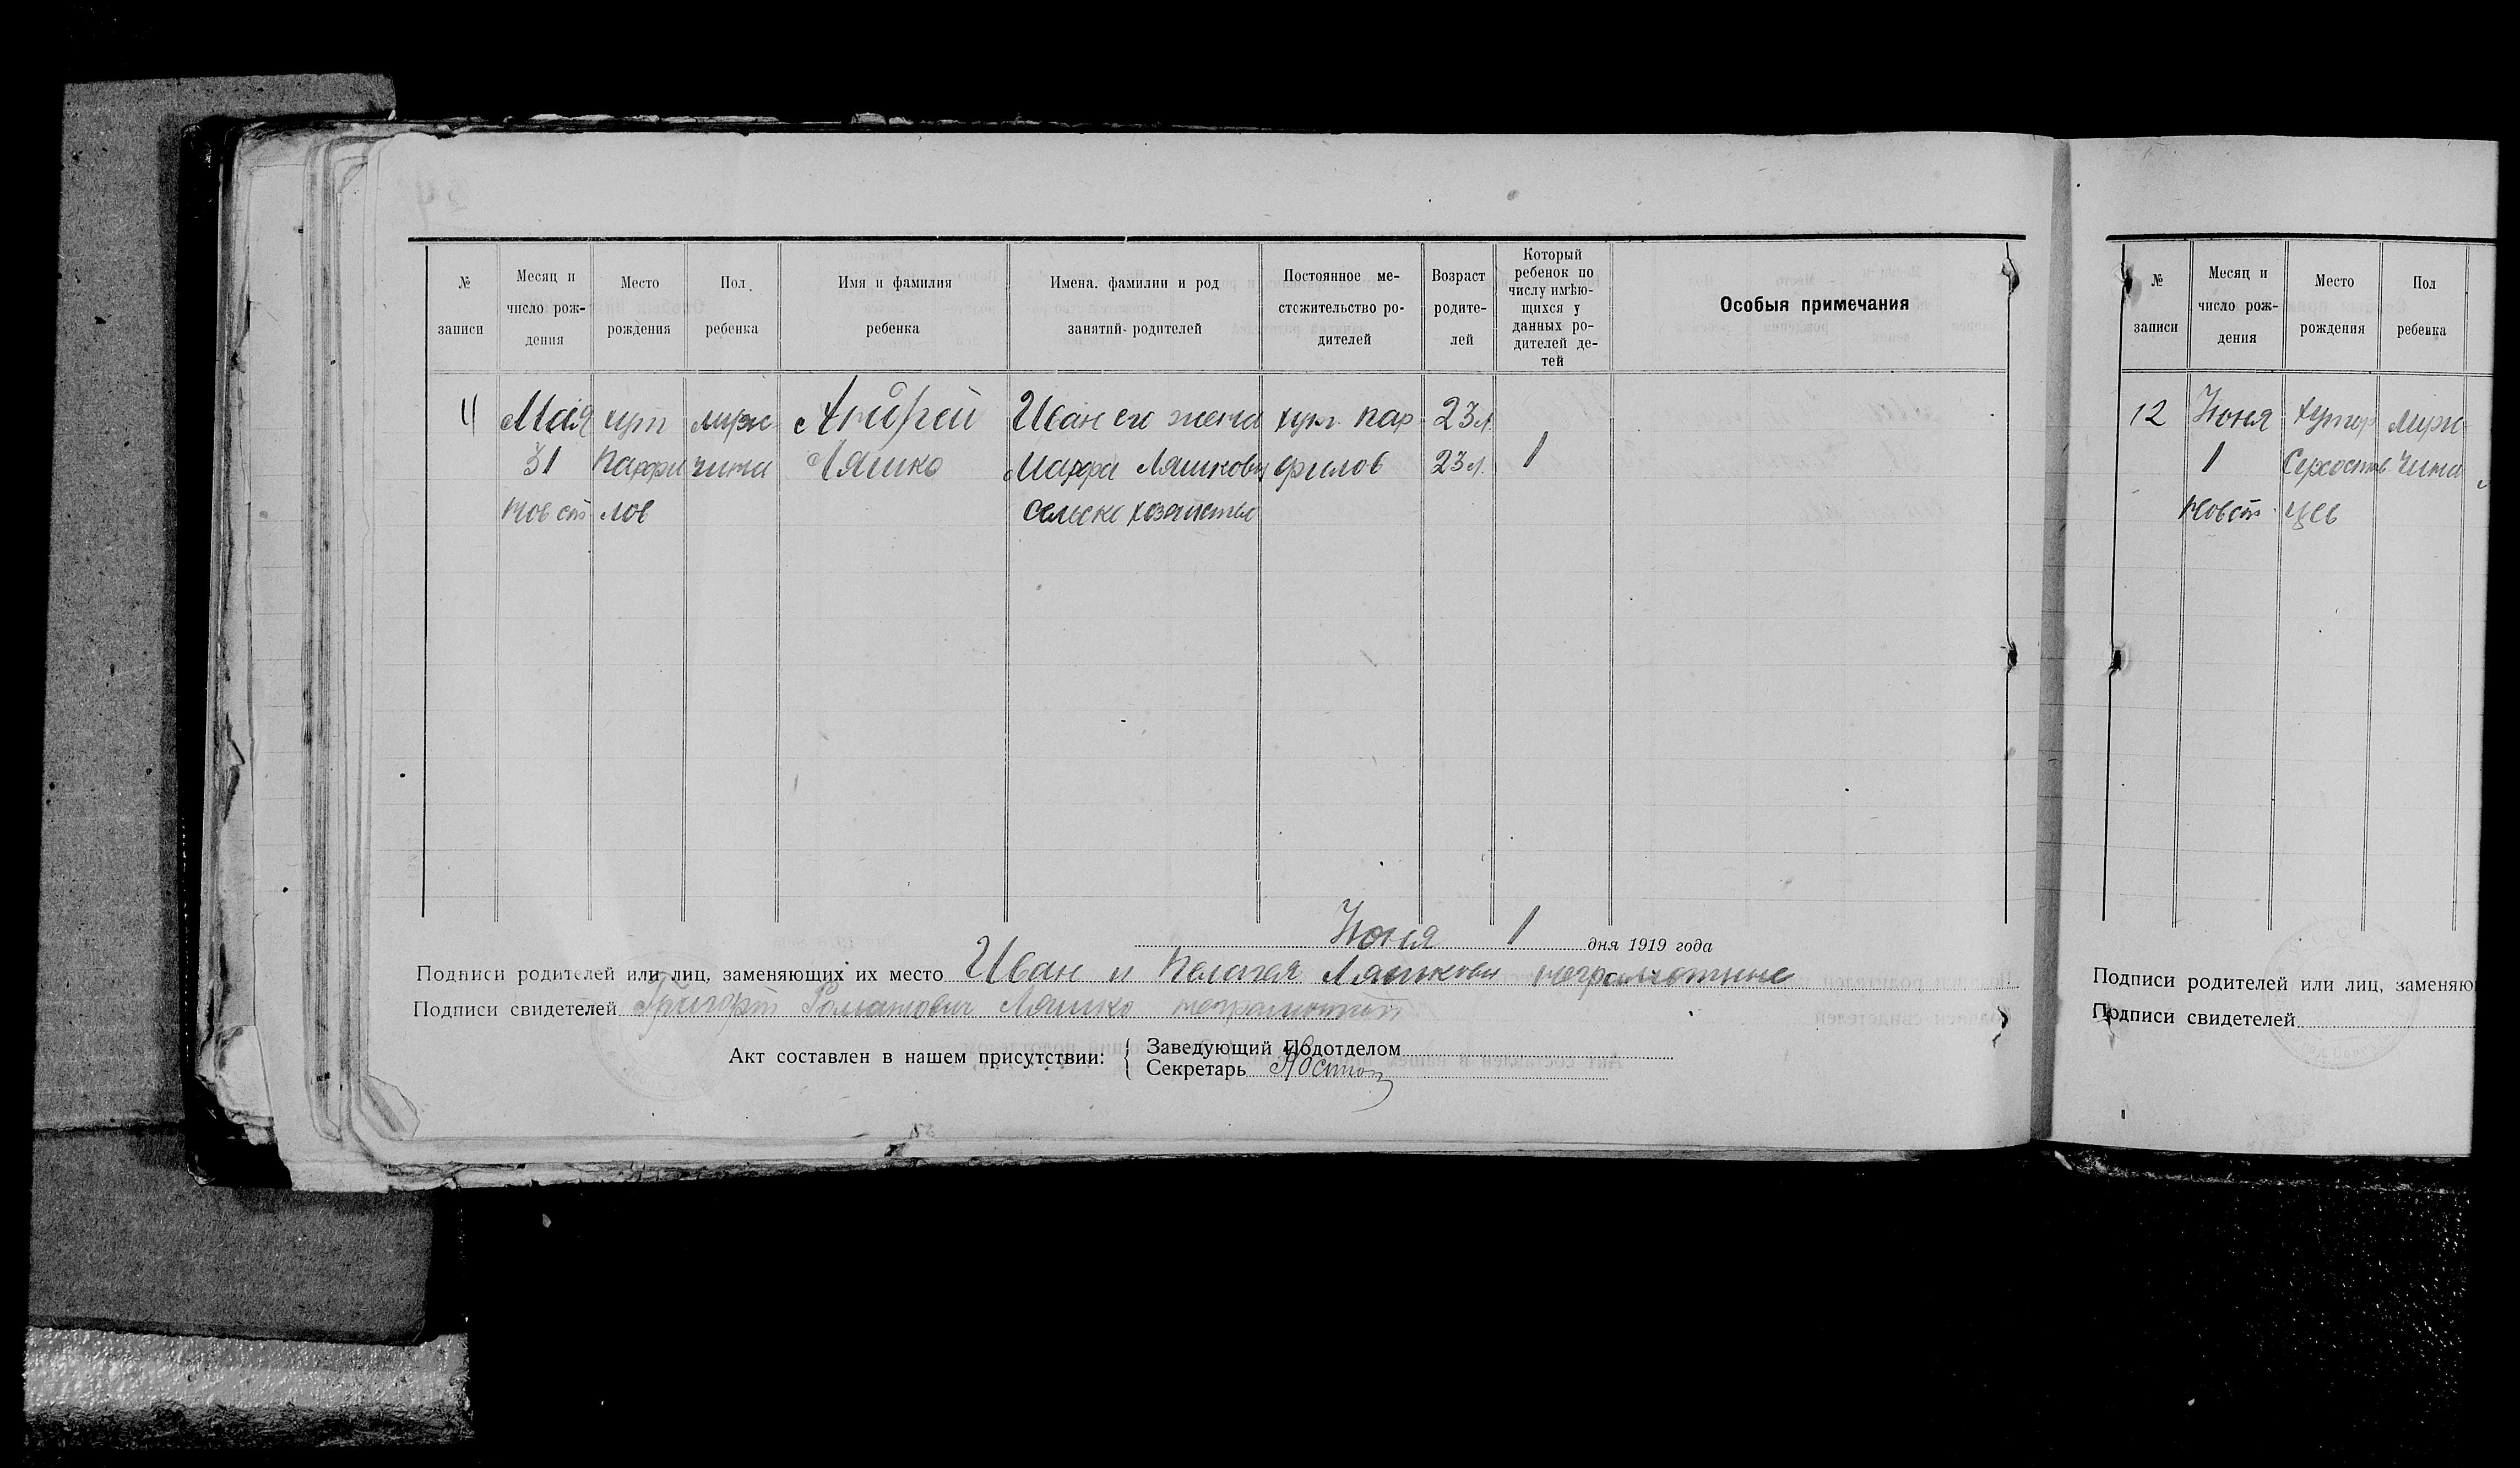 № записи
Месяц и число рож-дения
Место рождения
Пол ребенка
Имя и фамилия ребенка
Имена, фамилии и род занятий родителей
Постоянное ме-стожительство ро-дителей
Возраст родите-лей
Который ребенок по числу имѣю-щихся у данных ро-дителей де-тей
Особыя примечания
11 Мая хут мужс Андрей Иван его жена хут. Пар 23 л.
31 Парфи чина Ляшко Марфа Ляшковы филов 23 л. 1
Нов ст лов сельско хозяйство
Июня 1 дня 1919 года
Подписи родителей или лиц, заменяющих их место Иван и Пелагея Ляшковы неграмотные
Подписи свидетелей Григорий Романович Ляшко неграмотный
Акт составлен в нашем присутствии:
Заведующий Подотделом
Секретарь
№ записи
Месяц и число рож-дения
Место рождения
Пол ребенка
12 Июня Хутор Мущ
1 чина
Нов ст. цев
Подписи родителей или лиц, заменяю
Подписи свидетелей